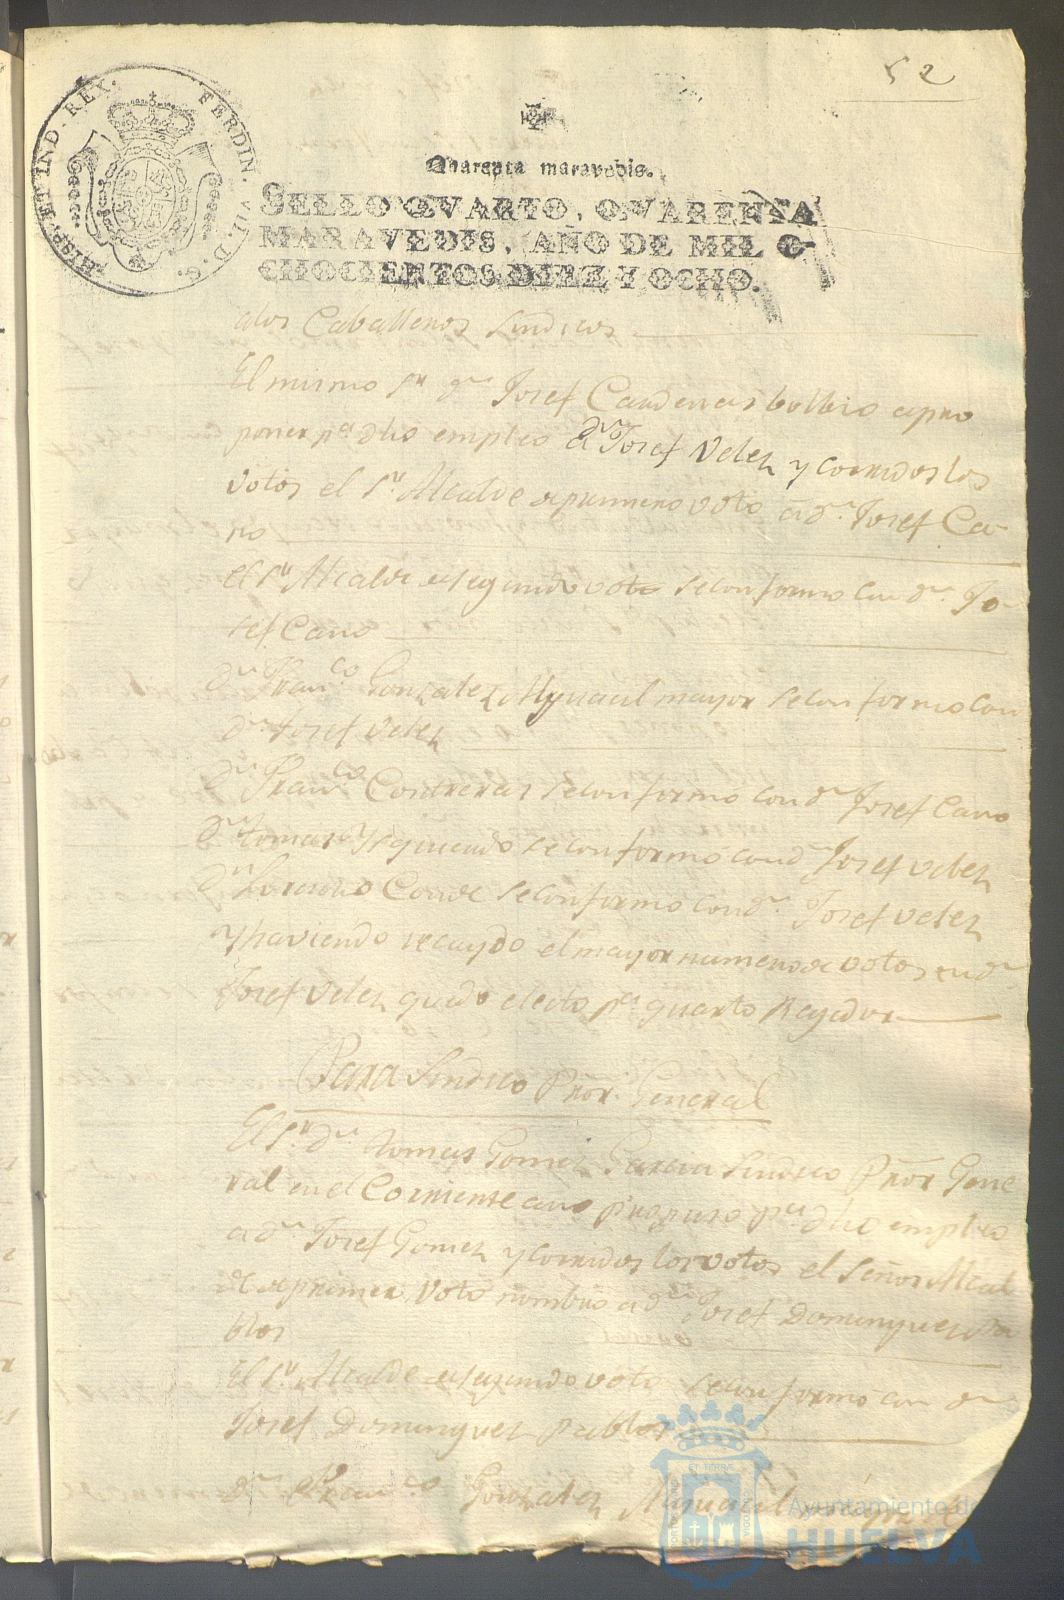 52
HISP. ET IND. REX. FERDIN. VII. D. G.
Quarenta maravedis.
SELLO QVARTO, QVARENTA
MARAVEDIS, AÑO DE MIL O-
CHOCIENTOS DIEZ Y OCHO.
alos Caballeros Sindicos
El mismo Sr. dn. Josef Cardenas bolbio apro
poner pa. dho empleo a dn. Josef Velez y corridos los
votos el Sr. Alcalde de primero voto a dn. Josef Ca-
no
el Sr. Alcalde de segundo voto se conformo con dn. Jo-
sef Cano
dn. Franco. Gonzalez Alguacil mayor se conformo con
dn. Josef Velez
dn. Franco. Contreras se conformó con dn. Josef Cano
dn. tomas Yzquierdo se conformó con dn. Josef Velez
dn. Lorenzo Conde se conformó con dn. Josef Velez
y haviendo recaydo el mayor numero de votos en dn.
Josef Velez quedo electo pa. quarto Rejidor
Para Sindico Pror. General
El Sr. dn. tomas Gomez Garcia Sindico Pror Gene
ral en el Corriente año propuso pa. dho empleo
a dn. Josef Gomez y corridos los votos el Señor Alcal
de de primer voto nombró a dn. Josef Dominguez Pa
blos
El Sr. Alcalde de segundo voto se conformó con dn.
Josef Dominguez pablos
dn. Franco. Gonzalez Alguacil mayor
Ayuntamiento de
HUELVA